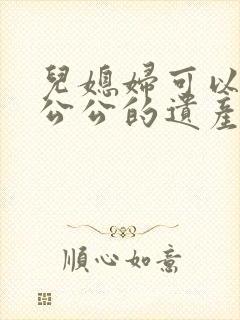 兒媳婦可以
公公的遺產
順心如意